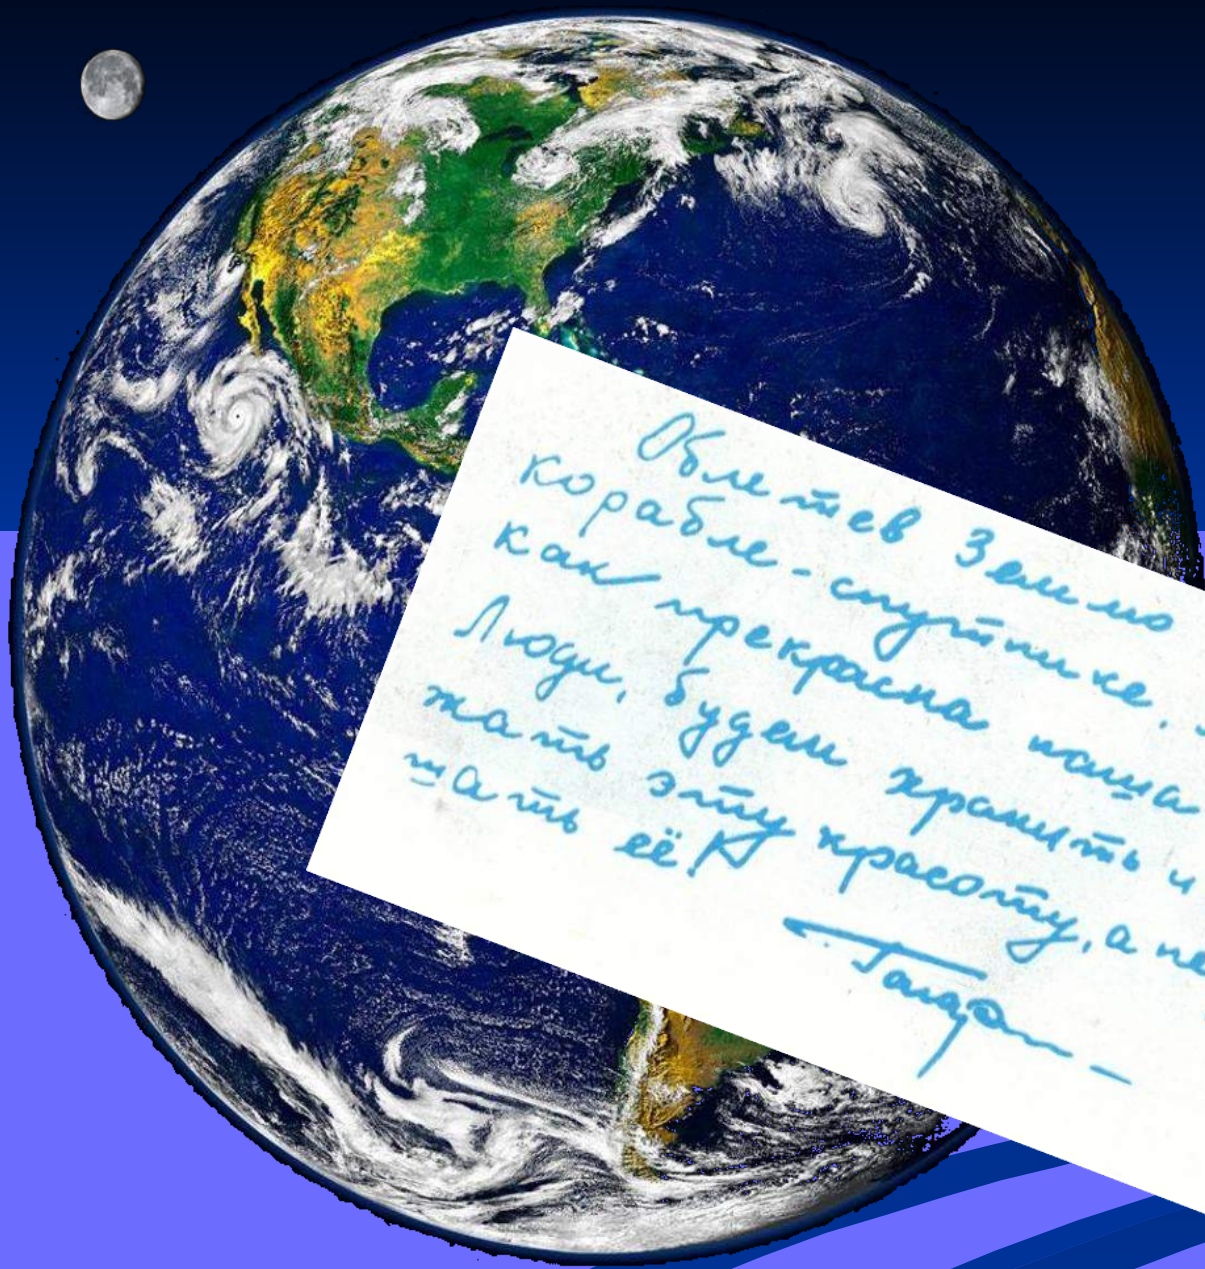 Облетев Землю
корабле-спутнике,
как прекрасна наша
Люди, будем хранить и
жать эту красоту, а не
шать её!
Гагарин